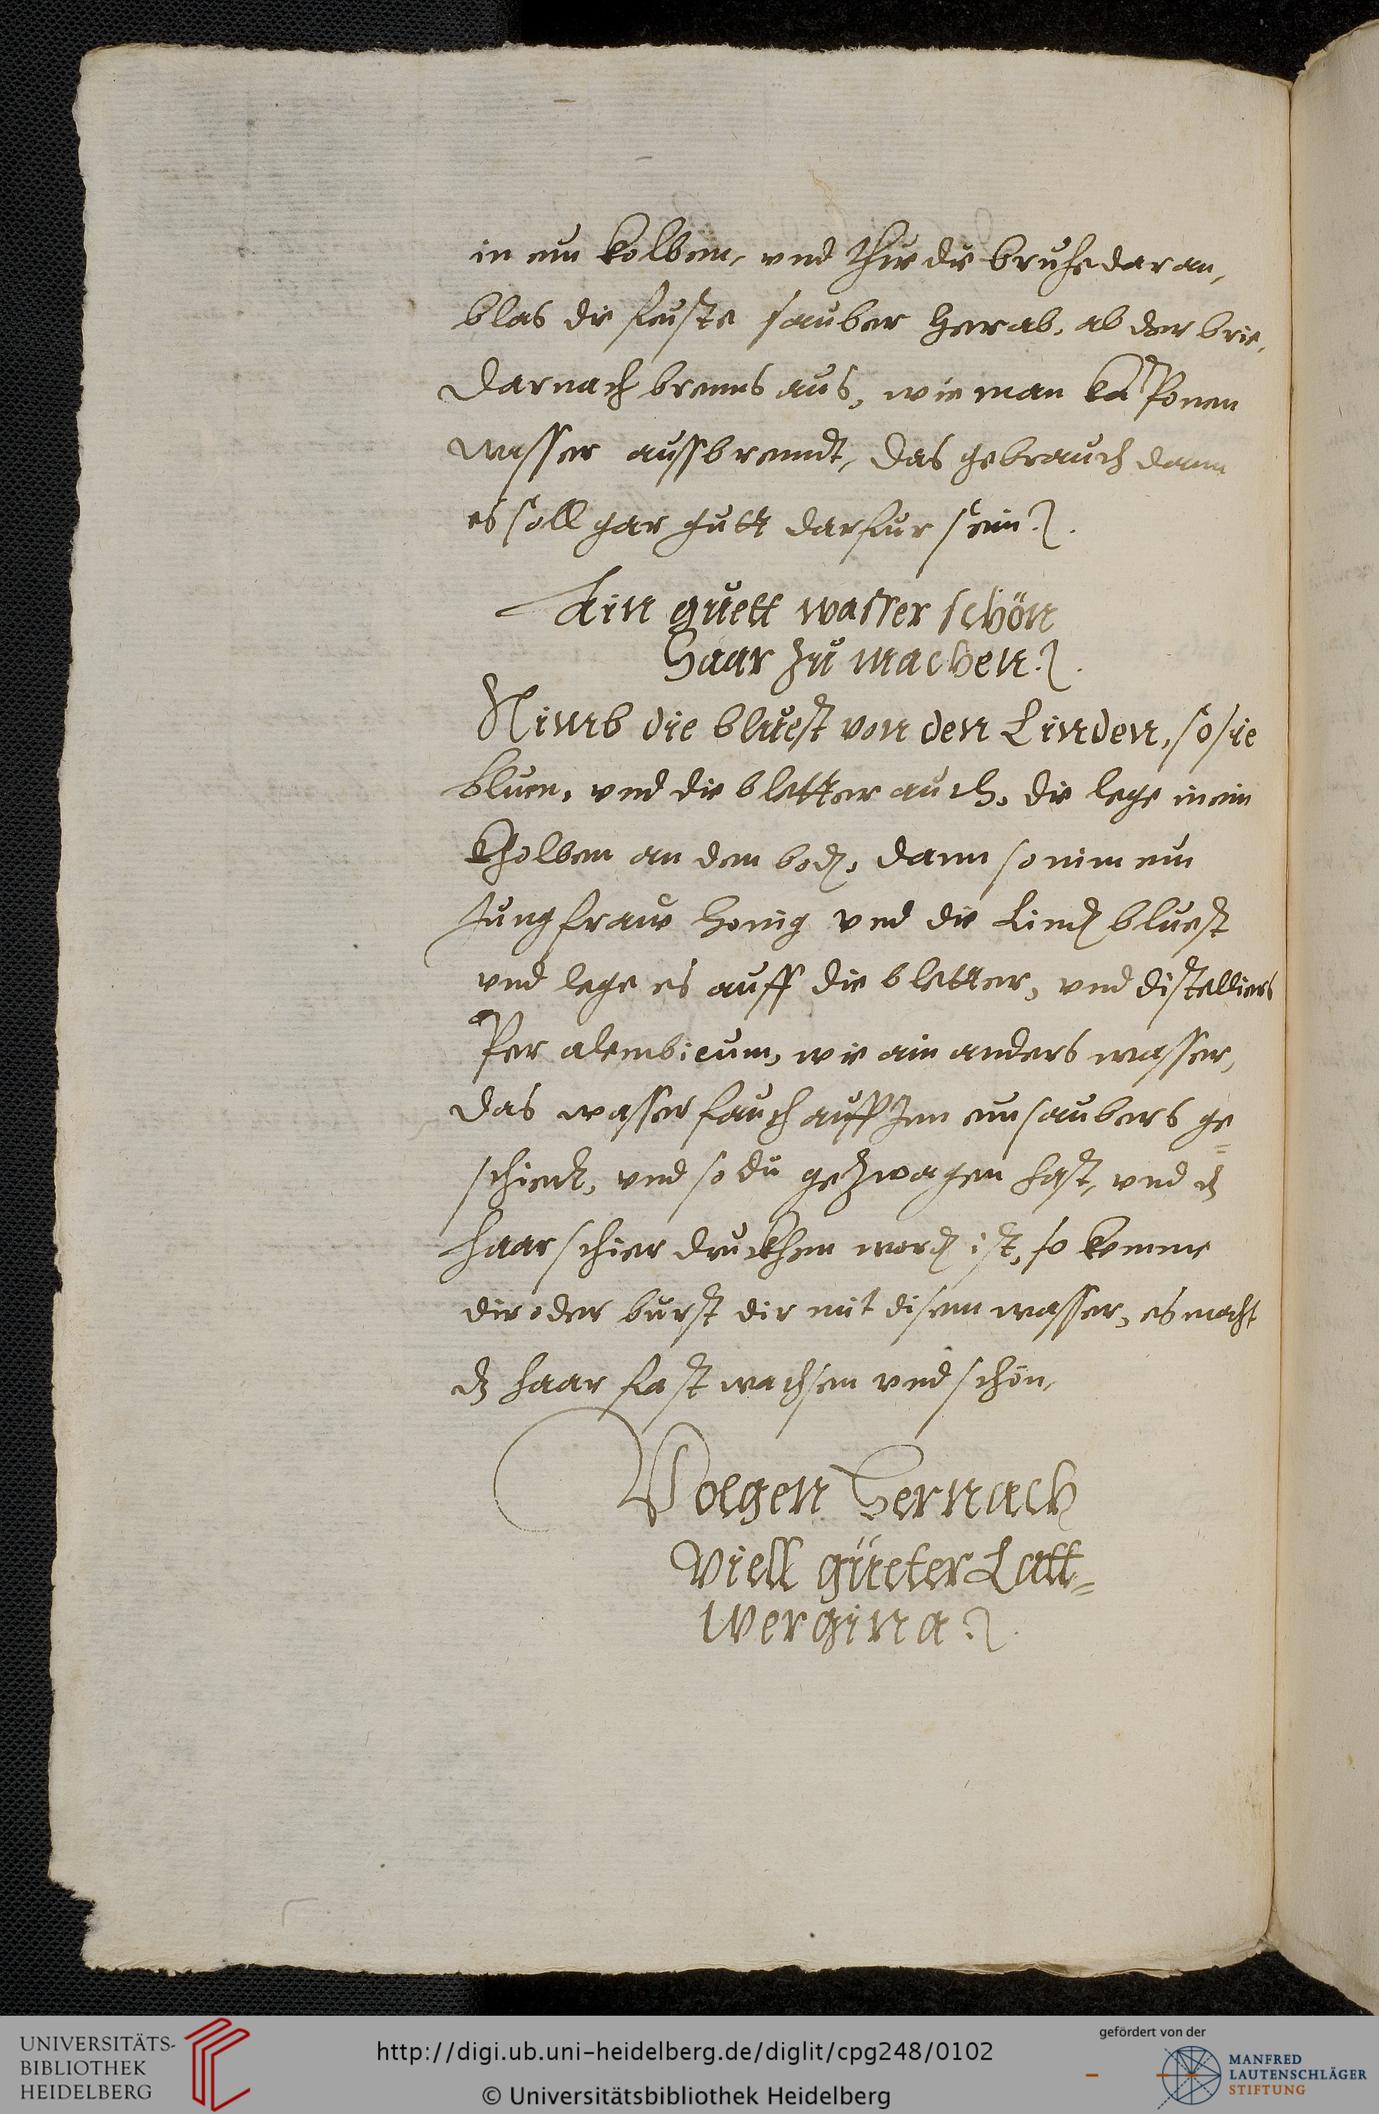 in ein kolben, vnd thue die bruhe dar an,
blas die feiste sauber herab, ab der brie,
Darnach brenns aus, wie man kaponen
wasser aussbrendt, das gebrauch dann
es soll gar gutt darfur sein.
Ain guett wasser schön
Haar zu machen.
Nimb die bluest von den Linden, so sie
bluen, vnd die bletter auch, die lege in ein
kholben an den bod, dann so nim ein
Jungfraw honig vnd die Lind bluest
vnd lege es auff die bletter, vnd distelliers
Per alembicum, wie ain anders wasser,
das wasser fach auff Inn ein saubers ge=
schier, vnd so du gezwagen hast, vnd dz
haar schier druckhen word ist, so kemme
die oder burst dir mit disem wasser, es macht
dz haar fast wachsen vnd schön,
Volgen Hernach
Viell güeter Latt=
wergina.
UNIVERSITÄTS-
BIBLIOTHEK
HEIDELBERG
http://digi.ub.uni-heidelberg.de/diglit/cpg248/0102
© Universitätsbibliothek Heidelberg
gefördert von der
MANFRED
LAUTENSCHLÄGER
STIFTUNG